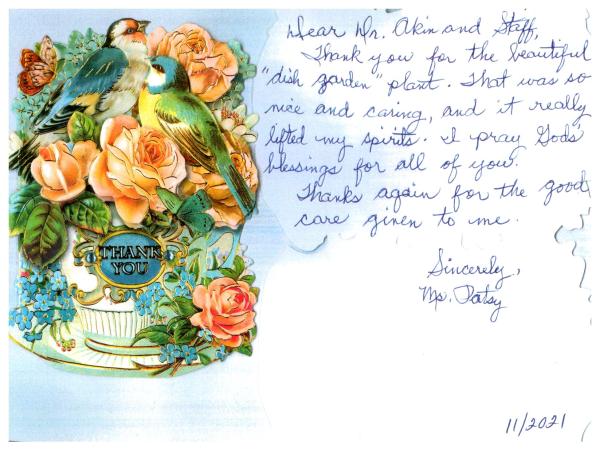 Dear Dr. Akin and Staff,
Thank you for the beautiful
"dish garden" plant. That was so
nice and caring, and it really
lifted my spirits. I pray Gods'
blessings for all of you.
Thanks again for the good
care given to me.
Sincerely,
Ms. Patsy
THANK
YOU
11/2021